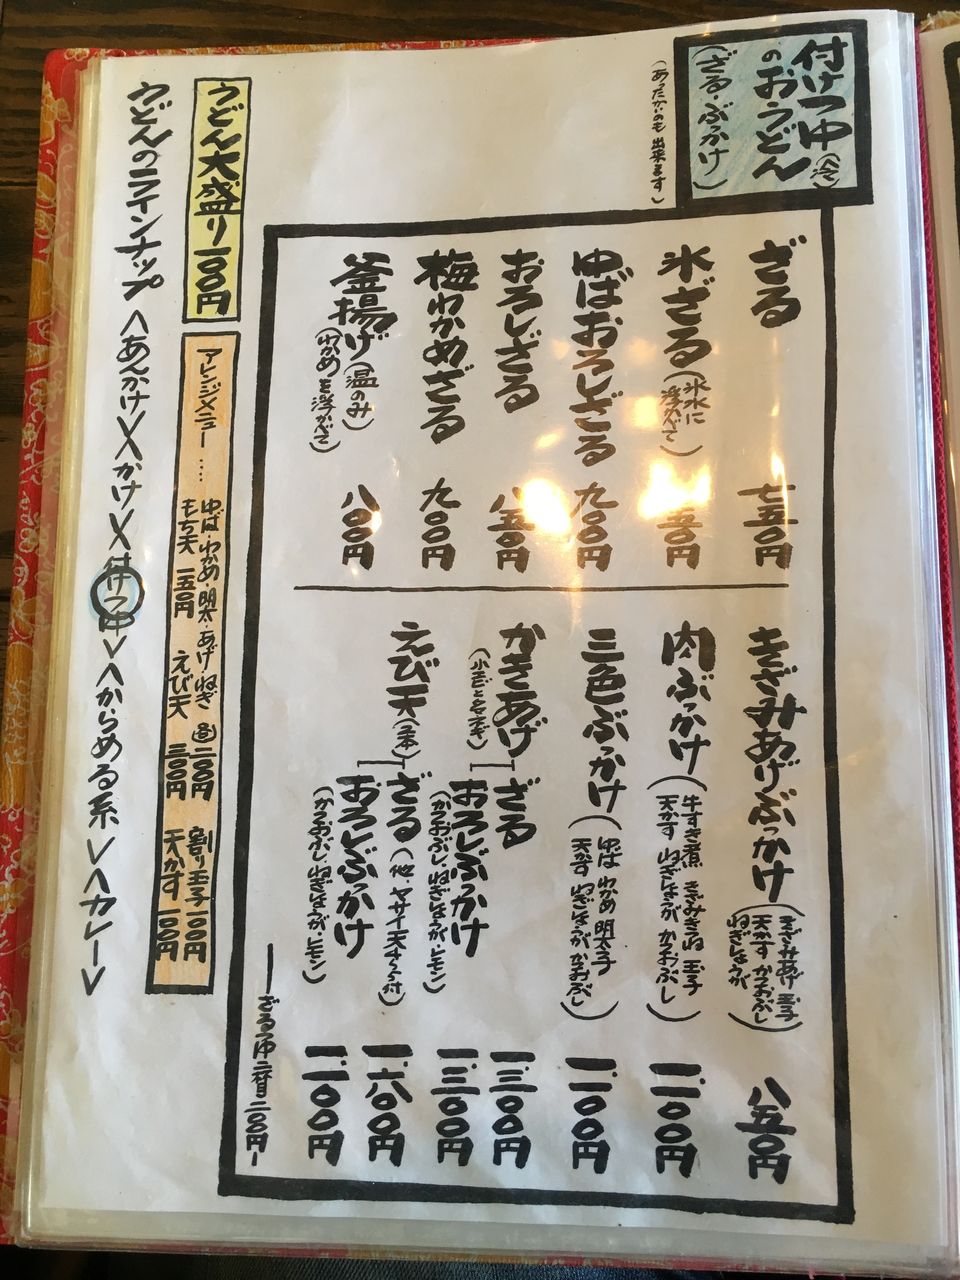 付けつゆ(冷)
のおうどん
(ざる・ぶっかけ)
(あったかいのも 出来ます)
ざる 七五〇円
氷ざる(氷水に浮かべて)
ゆばおろしざる 九〇〇円
おろしざる 八五〇円
梅わかめざる 九〇〇円
釜揚げ(温のみ)(わかめを浮かべて) 八〇〇円
きざみあげぶっかけ(きざみあげ 玉子 天かす かつおぶし ねぎしょうが) 八五〇円
肉ぶっかけ(牛すき煮 きざみきつね 玉子 天かす ねぎしょうが かつおぶし) 一、一〇〇円
三色ぶっかけ(ゆば わかめ 明太子 天かす ねぎしょうが かつおぶし) 一、一〇〇円
かきあげ(小えびと玉ねぎ)
ざる 一、三〇〇円
おろしぶっかけ(かつおぶし・ねぎしょうが・レモン) 一、三〇〇円
えび天(二本)
ざる(他 ヤサイ天さら付)
おろしぶっかけ(かつおぶし・ねぎしょうが・レモン)
ざるつゆ二杯目 二〇〇円
うどん大盛り 一〇〇円
アレンジメニュー……
ゆば・わかめ・明太・あげ・ねぎ 各二〇〇円 割り玉子 一〇〇円
もち天 一五〇円 えび天 三〇〇円 天かす 一〇〇円
うどんのラインナップ <あんかけ><かけ><付つゆ><からめる系><カレー>